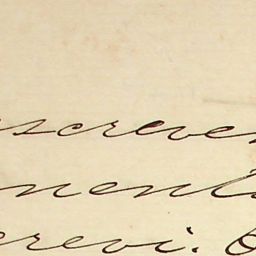 screver
ment
crevi.